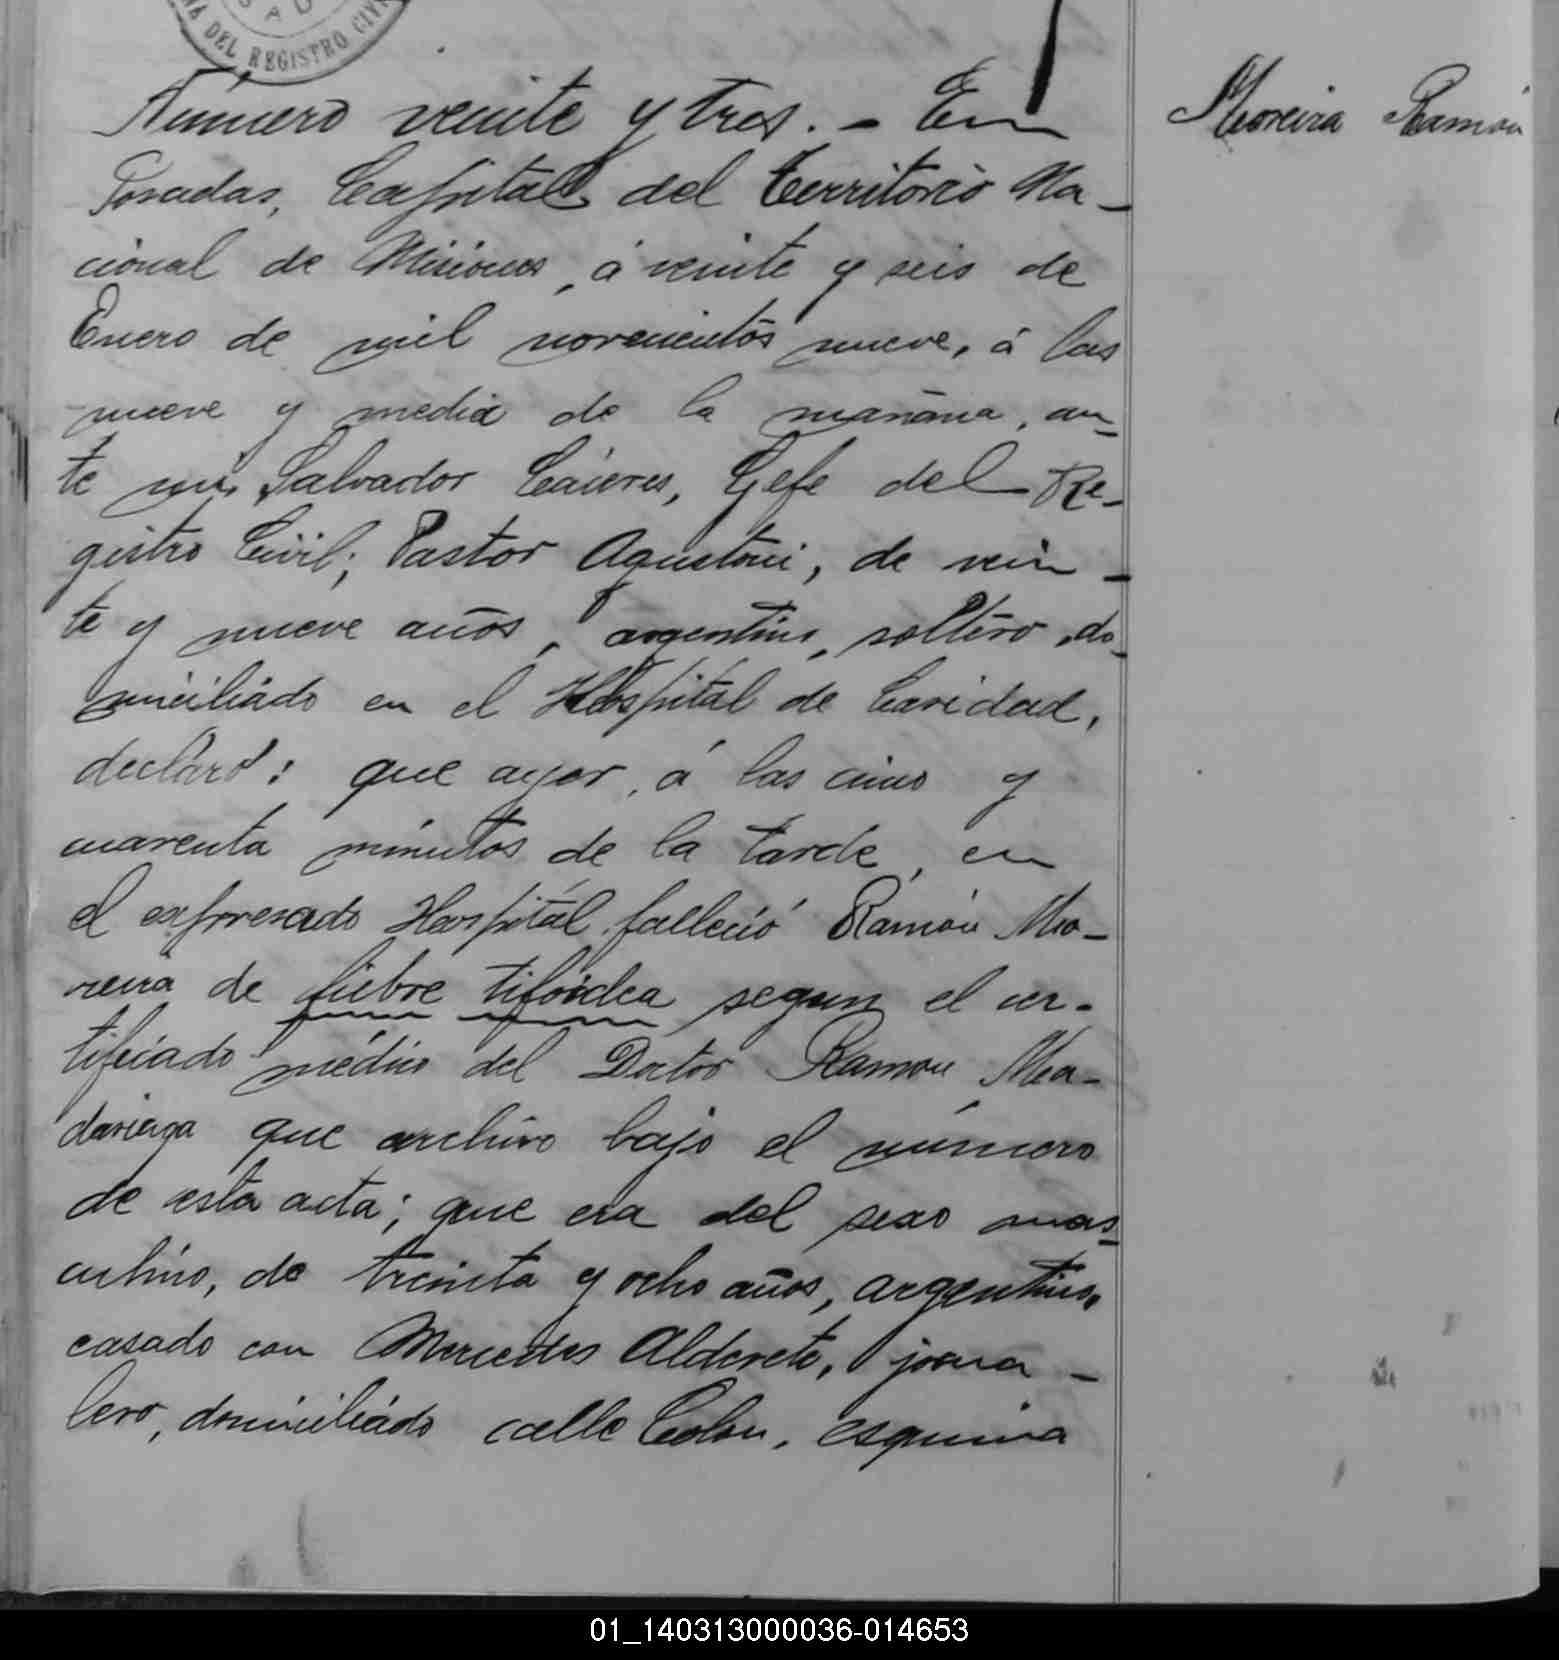 DEL REGISTRO CIVI
Número veinte y tres. - En
Moreira Ramón
Posadas, Capital del Territorio Na-
cional de Misiones, á veinte y seis de
Enero de mil novecientos nueve, á las
nueve y media de la mañana, an-
te mí, Salvador Cáceres, Gefe del Re-
gistro Civil; Pastor Agustoni, de vein-
te y nueve años, argentino, soltero, do-
miciliado en el Hospital de Caridad,
declaró: que ayer, á las cinco y
cuarenta minutos de la tarde, en
el expresado Hospital falleció Ramón Mo-
reira de fiebre tifoidea segun el cer-
tificado médico del Doctor Ramon Ma-
dariaga que archivo bajo el número
de esta acta; que era del sexo mas-
culino, de treinta y ocho años, argentino,
casado con Mercedes Alderete, jorna-
lero, domiciliado calle Colon, esquina
01_140313000036-014653